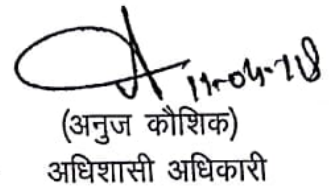 11-04-18
(अनुज कौशिक)
अधिशासी अधिकारी